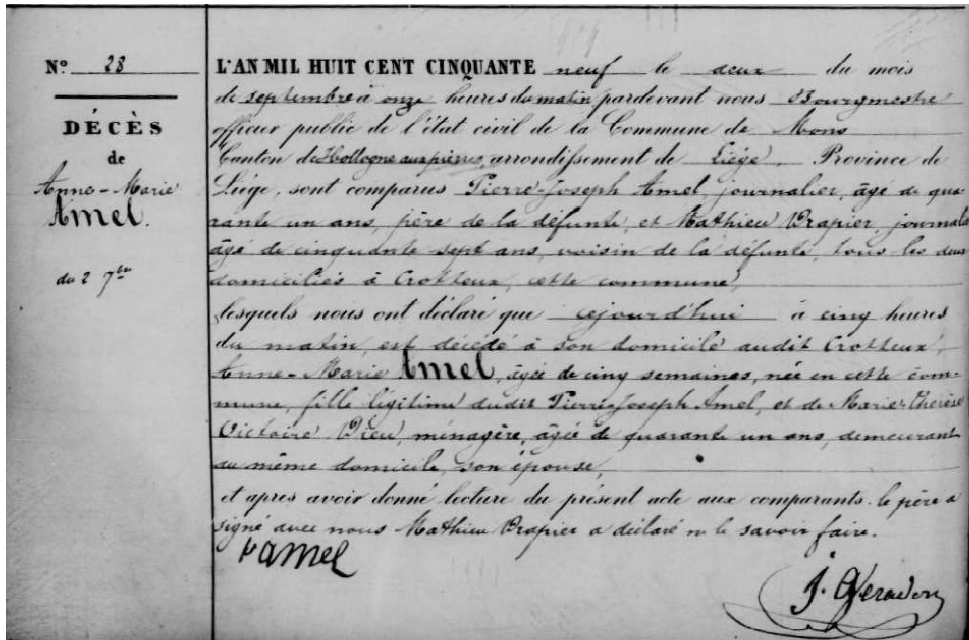 Nº 28
DÉCÈS
de
Anne-Marie
Amel.
du 2 7bre
L'AN MIL HUIT CENT CINQUANTE neuf le deux du mois
de septembre à onze heures du matin pardevant nous Bourgmestre
officier public de l'état civil de la Commune de Mons
Canton de Hollogne aux pierres, arrondissement de Liége, Province de
Liége, sont comparus Pierre-Joseph Amel, journalier, âgé de qua-
rante un ans, père de la défunte, et Mathieu Drapier, journalier
âgé de cinquante-sept ans, voisin de la défunte, tous les deux
domiciliés à Crotteux, cette commune,
lesquels nous ont déclaré que cejourd'hui à cinq heures
du matin, est décédé à son domicile audit Crotteux,
Anne-Marie Amel, âgée de cinq semaines, née en cette com-
mune, fille légitime dudit Pierre-Joseph Amel, et de Marie-Thérèse
Victoire Dieu, ménagère, âgée de quarante un ans, demeurant
au même domicile, son épouse,
et après avoir donné lecture du présent acte aux comparants le père a
signé avec nous Mathieu Drapier a déclaré ne le savoir faire.
Amel